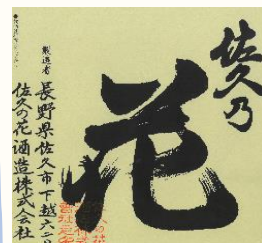 佐久乃
花
製造者
長野県佐久市下越六二
佐久の花酒造株式会社